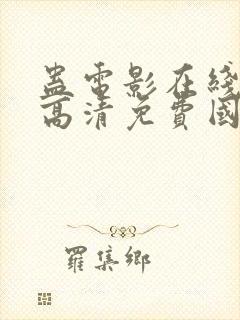 蛊電影在綫
高清免費國
羅集鄉